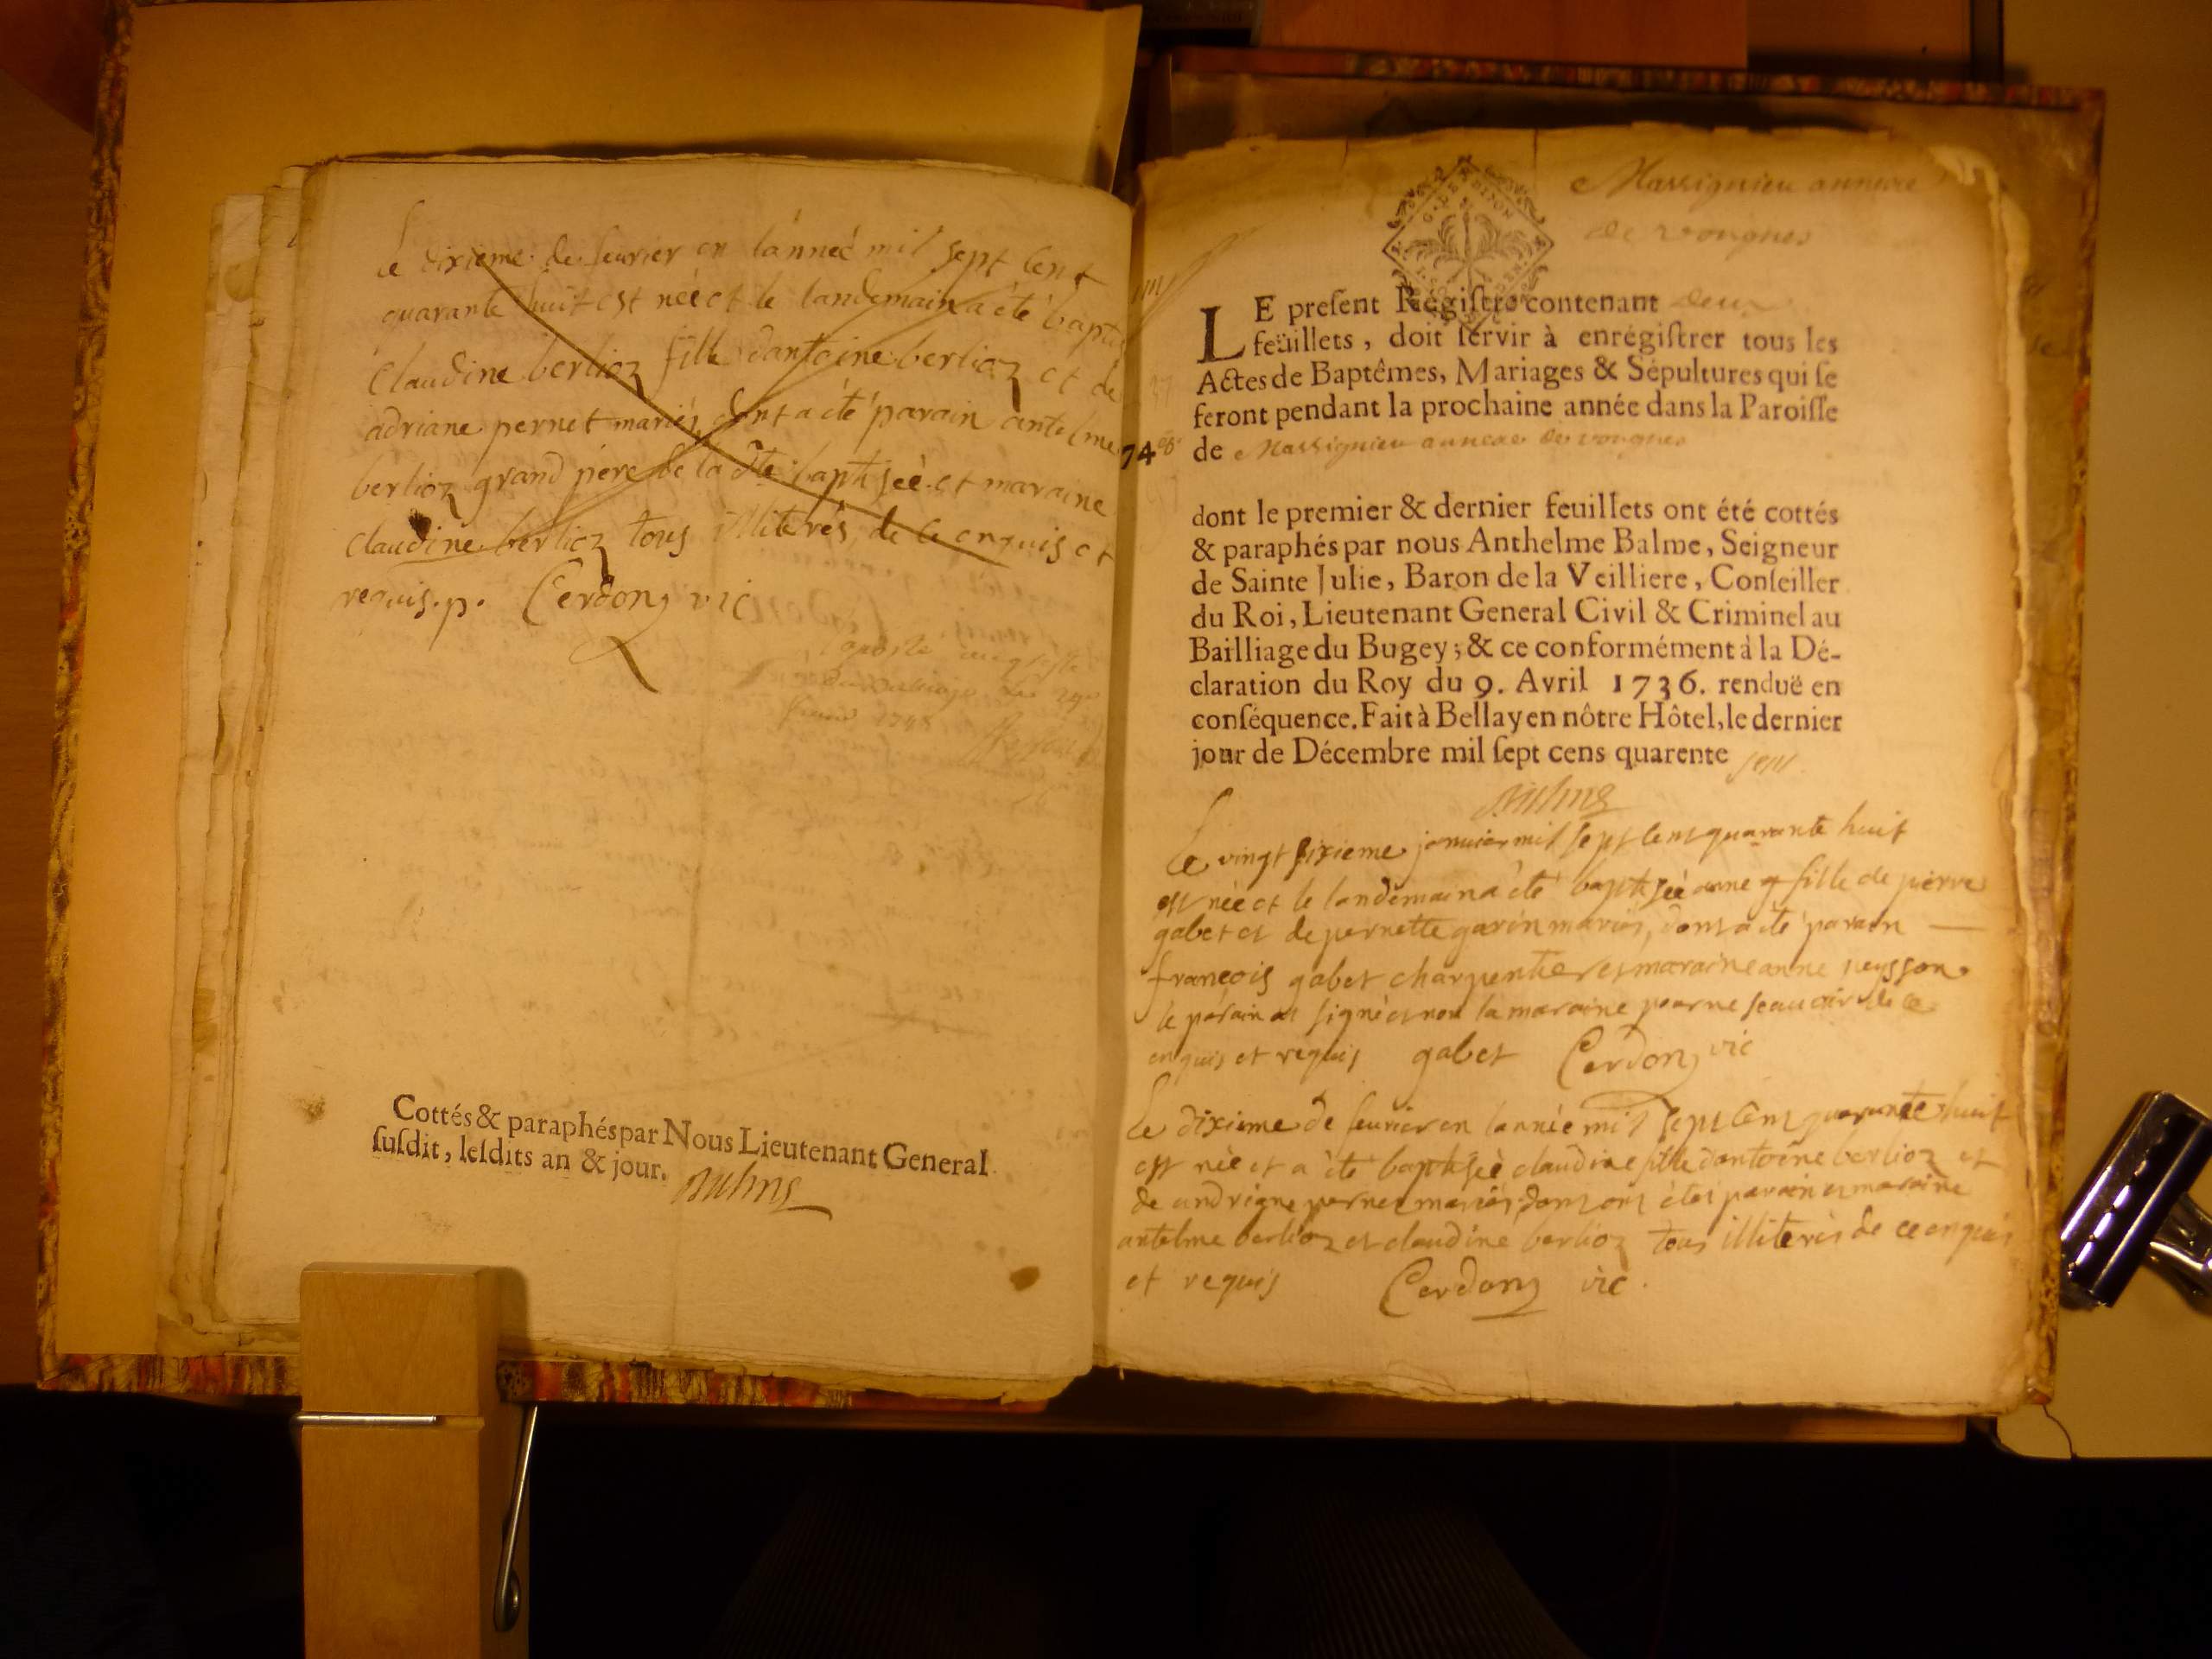 Le dixieme de feurier en lànneè mil sept cent
quarante huit est neè et le landemain a èté baptis
Claudine berlioz fille dantoine berlioz et de
adriane pernet mariés, dont a èté parain antelme
berlioz grand pere de la dte baptiseè et maraine
claudine berlioz tous illiterés de ce enquis et
requis. p. Cerdon vic
1748
Cottés & paraphés par Nous Lieutenant General
ſuſdit, leſdits an & jour.
Massignieu annexe
de vongnes
LE preſent Régiſtre contenant deux
feüillets, doit ſervir à enrégiſtrer tous les
Actes de Baptêmes, Mariages & Sépultures qui ſe
feront pendant la prochaine année dans la Paroiſſe
74
de Massignieu annexe de vongnes
dont le premier & dernier feuillets ont été cottés
& paraphés par nous Anthelme Balme, Seigneur
de Sainte Julie, Baron de la Veilliere, Conſeiller
du Roi, Lieutenant General Civil & Criminel au
Bailliage du Bugey; & ce conformément à la Dé-
claration du Roy du 9. Avril 1736. renduë en
conſéquence. Fait à Bellay en nôtre Hôtel, le dernier
jour de Décembre mil ſept cens quarente sept
Le vingt sixieme januier mil sept cent quarante huit
est neè et le landemain a èté baptiseè anne fille de pierre
gabet et de pernette garin mariés, dont a èté parain
françois gabet charpentier et maraine anne peysson
le parain at signé et non la maraine pour ne scauoir de ce
enquis et requis gabet Cerdon vic
Le dixieme de feurier en lannèe mil sept cent quarante huit
est neè et a èté baptiseè claudine fille dantoine berlioz et
de andrigne pernet mariés dont ont étés parain et maraine
antelme berlioz et claudine berlioz tous illiterés de ce enquis
et requis Cerdon vic.